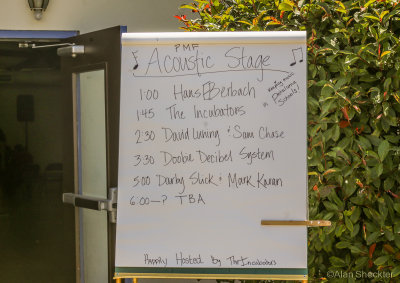 PMF
Acoustic Stage
1:00 Hans Berbach
Keeping music in Petaluma Schools!
1:45 The Incubators
2:30 David Luning & Sam Chase
3:30 Doobie Decibel System
5:00 Darby Slick & Mark Karan
6:00—? TBA
Happily Hosted By The Incubators
©Alan Sheckter